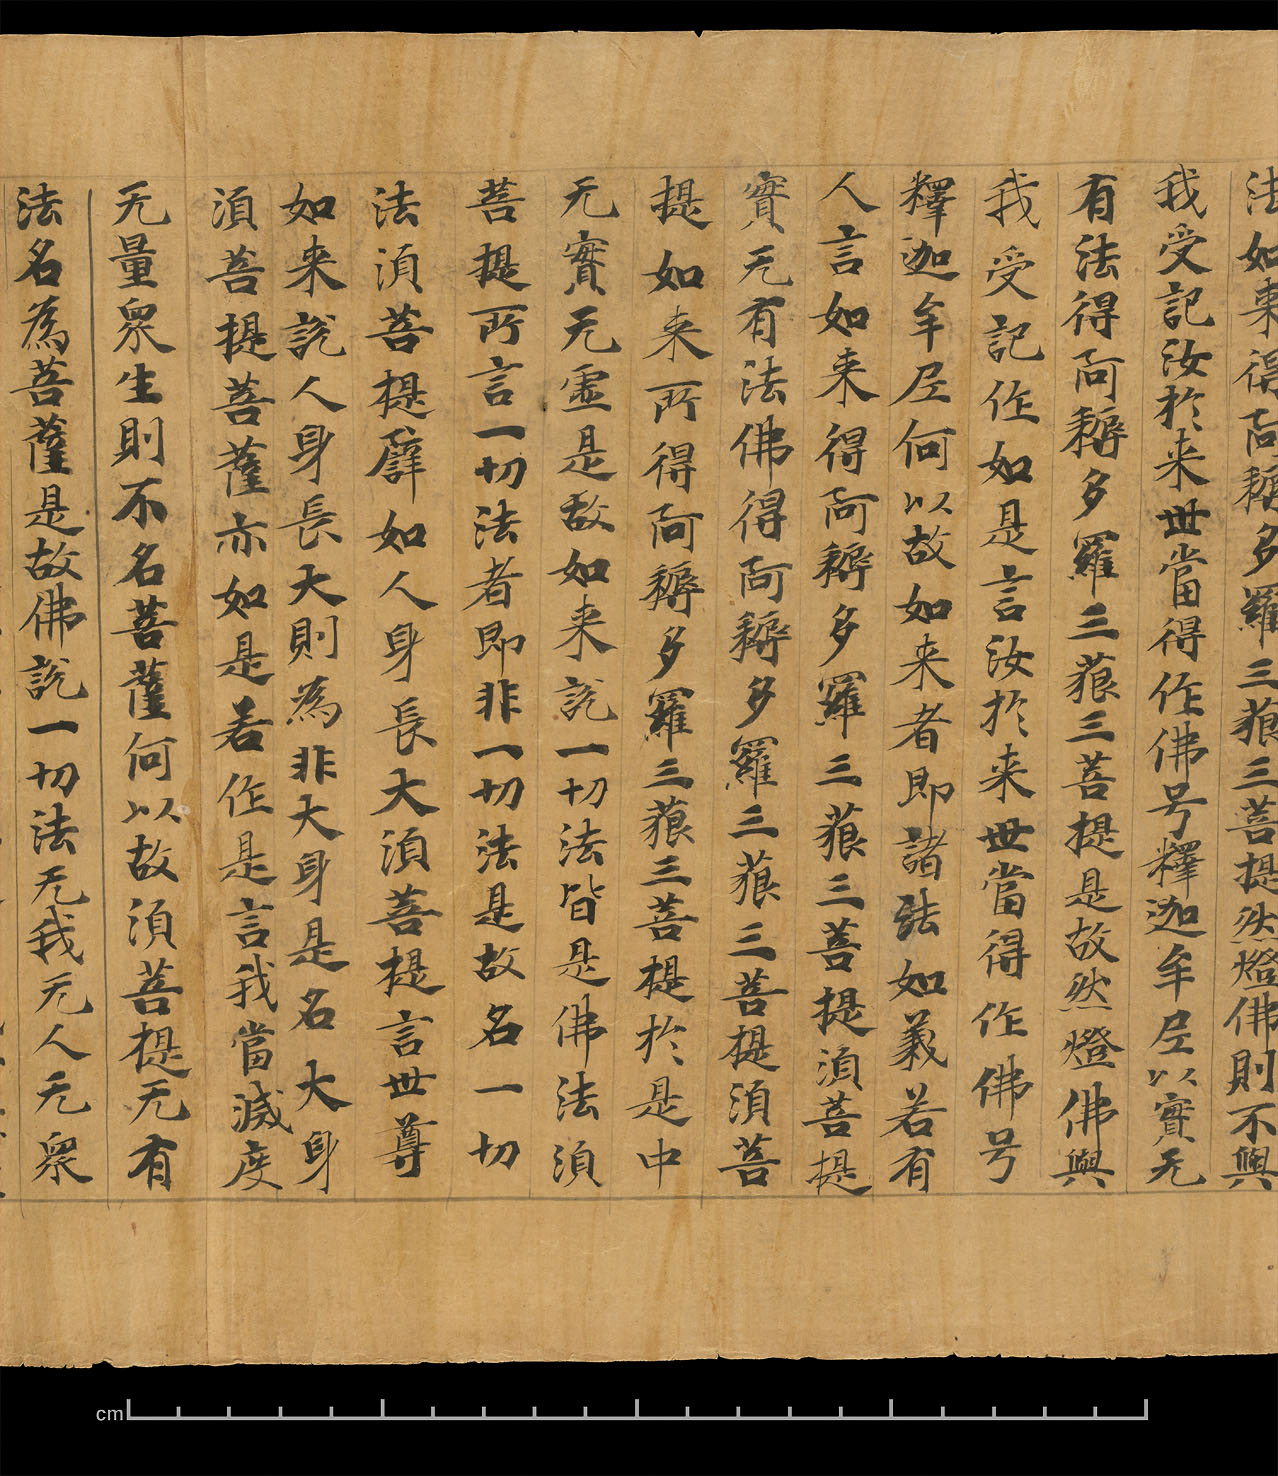 法如来得阿耨多羅三藐三菩提然燈佛則不與
我受記汝於来世當得作佛号釋迦牟尼以實无
有法得阿耨多羅三藐三菩提是故然燈佛與
我受記作如是言汝於来世當得作佛号
釋迦牟尼何以故如来者即諸法如義若有
人言如来得阿耨多羅三藐三菩提須菩提
實无有法佛得阿耨多羅三藐三菩提須菩
提如来所得阿耨多羅三藐三菩提於是中
无實无虛是故如来說一切法皆是佛法須
菩提所言一切法者即非一切法是故名一切
法須菩提譬如人身長大須菩提言世尊
如来說人身長大則為非大身是名大身
須菩提菩薩亦如是若作是言我當滅度
无量眾生則不名菩薩何以故須菩提无有
法名為菩薩是故佛說一切法无我无人无眾
cm